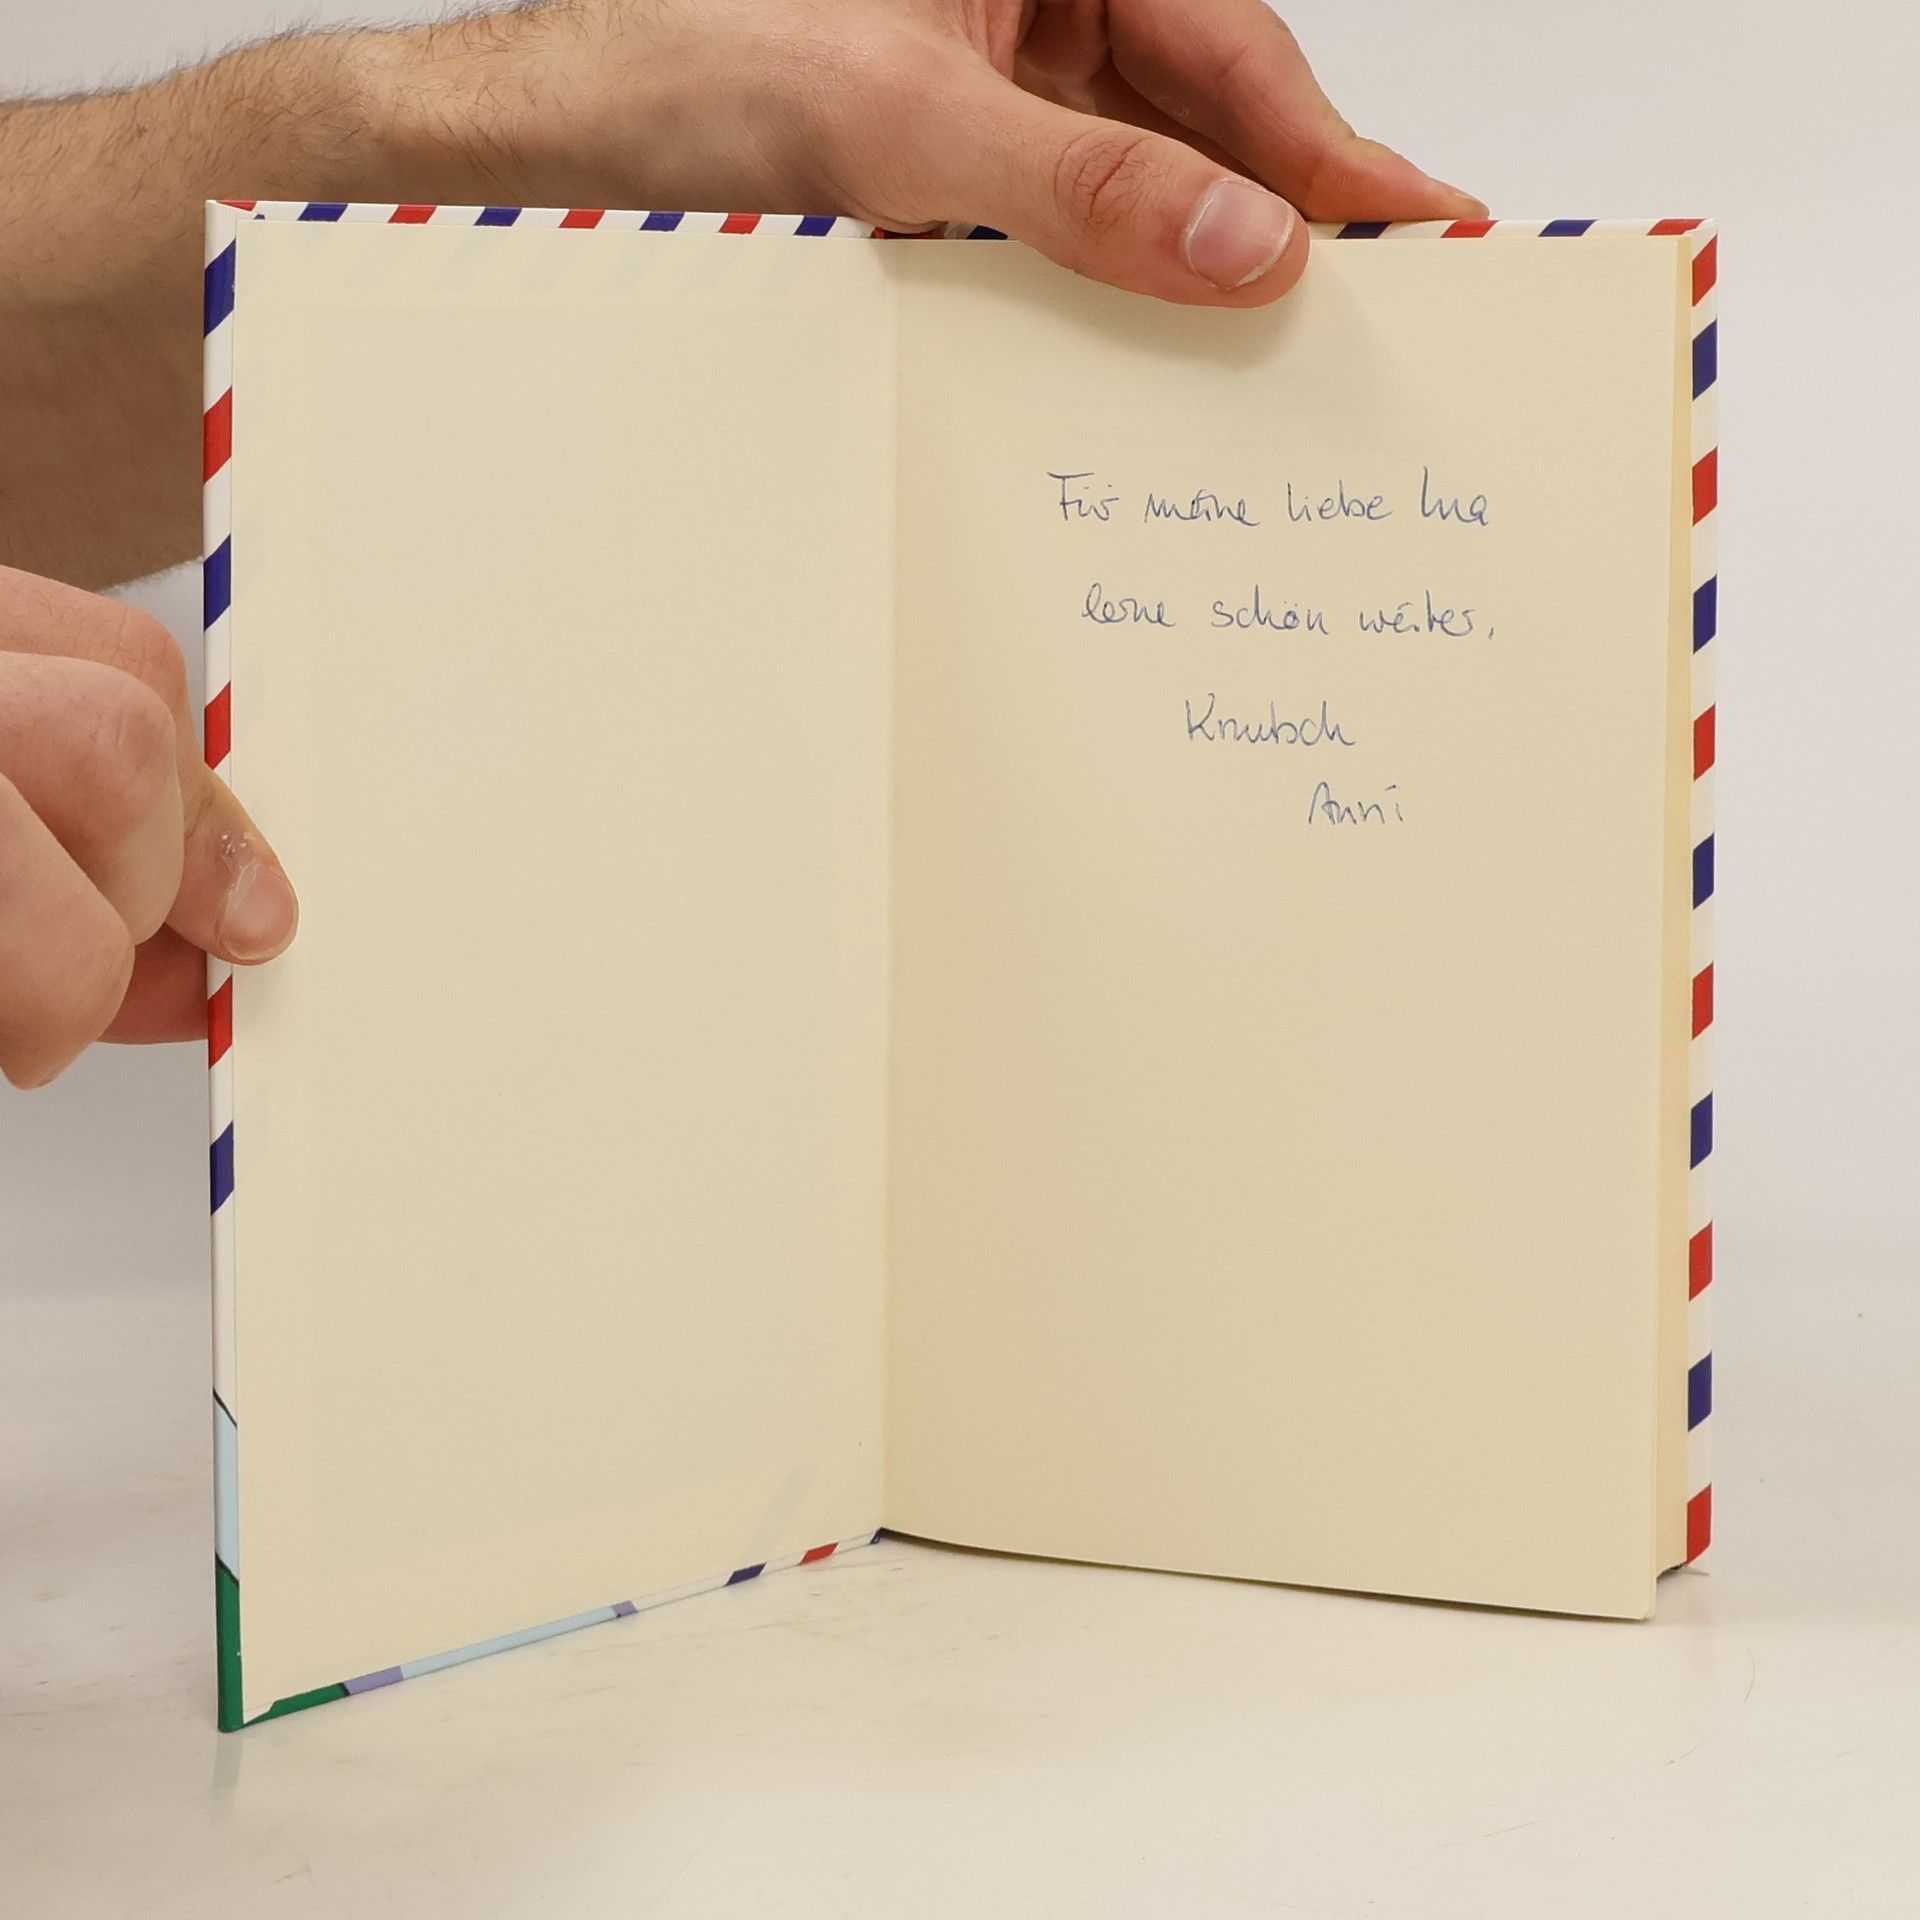 Für meine liebe Ina
lerne schön weiter.
Knutsch
Anni